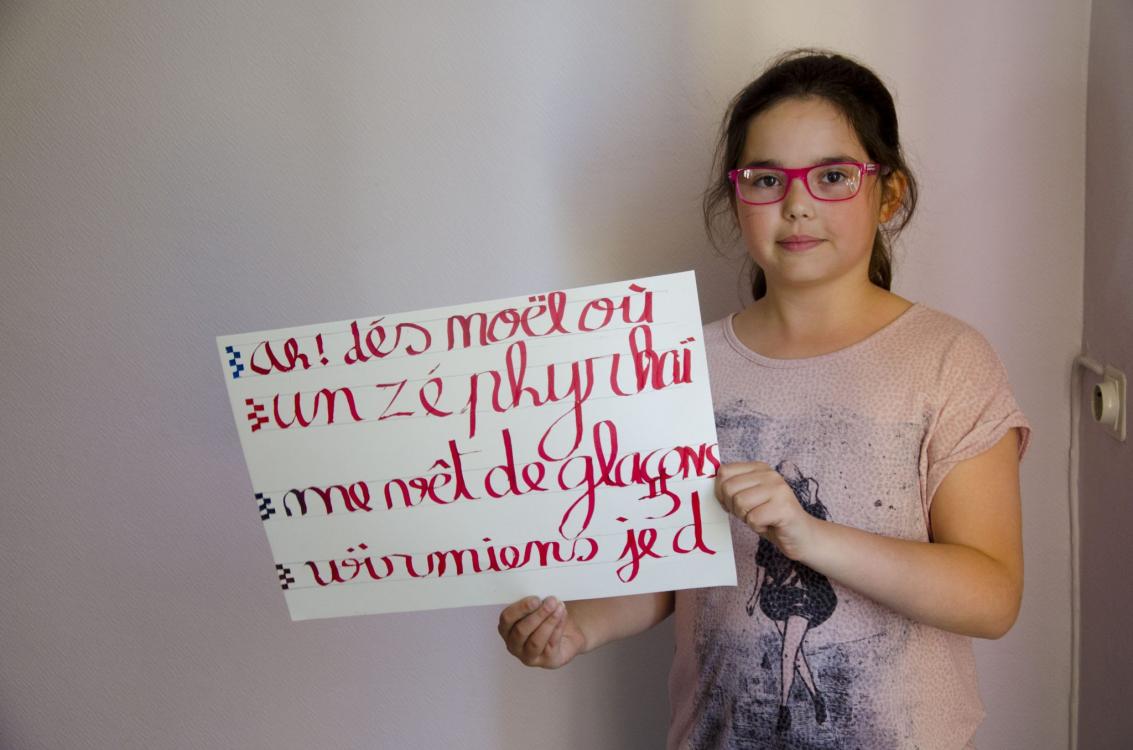 Ah! dés Noël où
un zéphyr haï
me vêt de glaçons
würmiens je d